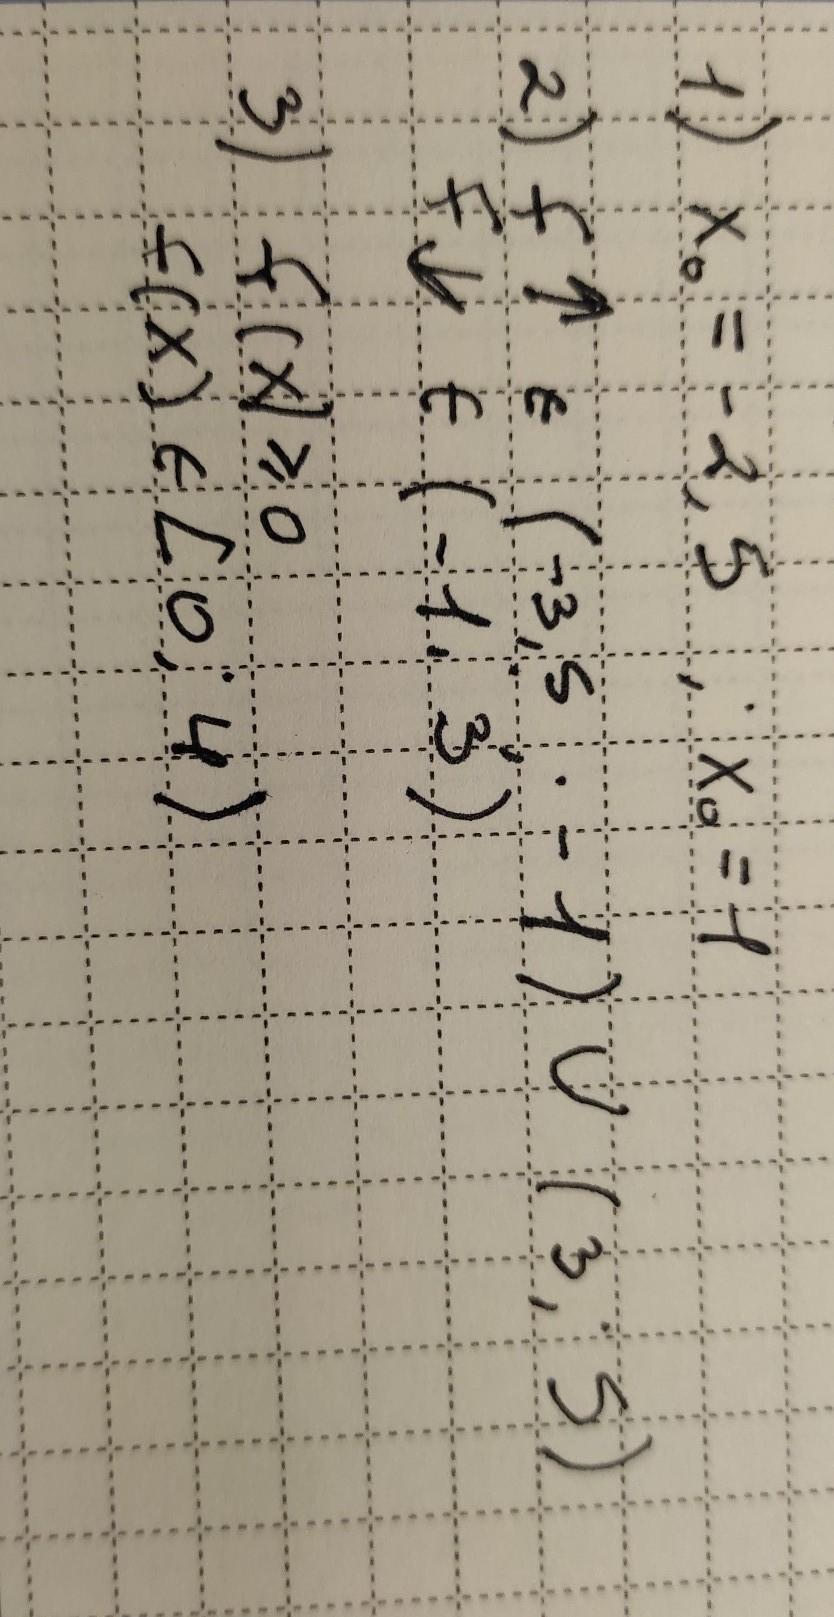 1) x₀ = -2,5 ; x₀ = 1
2) f ↑ ∈ (-3,5 ; -1) ∪ (3 ; 5)
f ↓ ∈ (-1 ; 3)
3) f(x) ≥ 0
f(x) ∈ [0 ; 4)